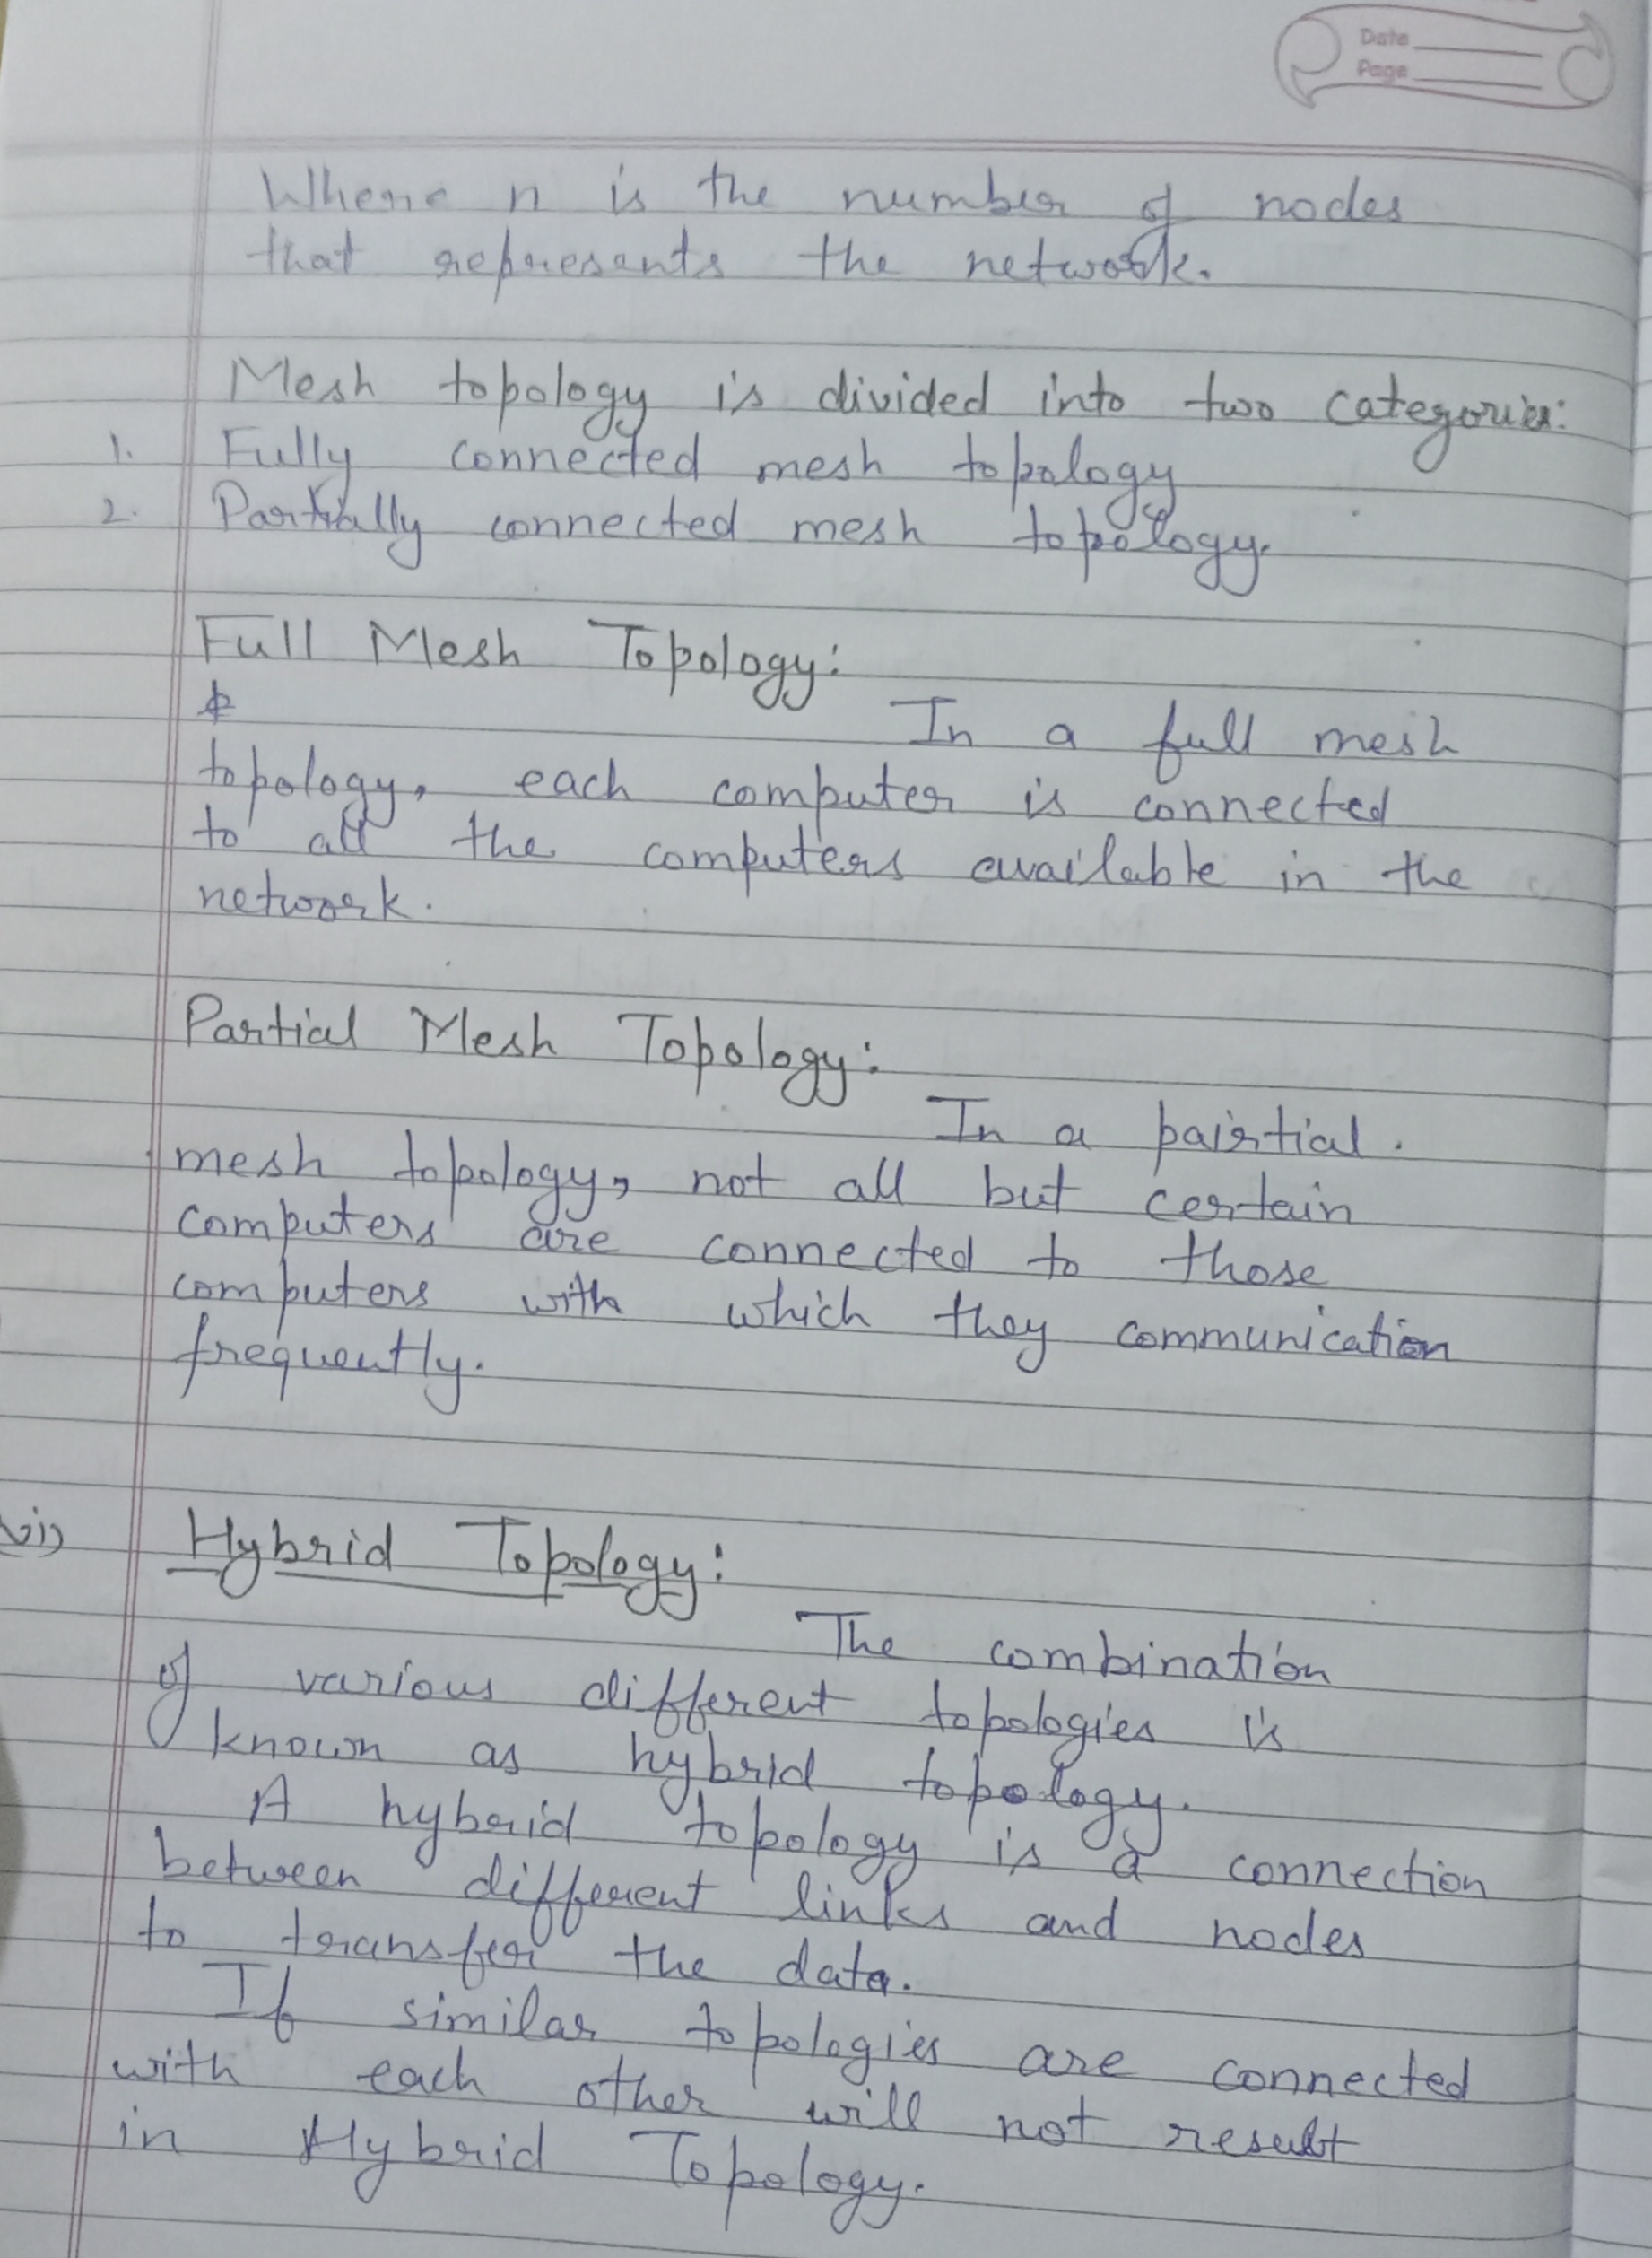 Date
Page
Where n is the number of nodes
that represents the network.
Mesh topology is divided into two categories:
1. Fully connected mesh topology
2. Partially connected mesh topology.
Full Mesh Topology:
In a full mesh
topology, each computer is connected
to all the computers available in the
network.
Partial Mesh Topology:
In a pairtial.
mesh topology, not all but certain
computers are connected to those
computers with which they communication
frequently.
vi) Hybrid Topology:
The combination
of various different topologies is
known as hybrid topology.
A hybrid topology is a connection
between different links and nodes
to transfer the data.
If similar topologies are connected
with each other will not result
in Hybrid Topology.